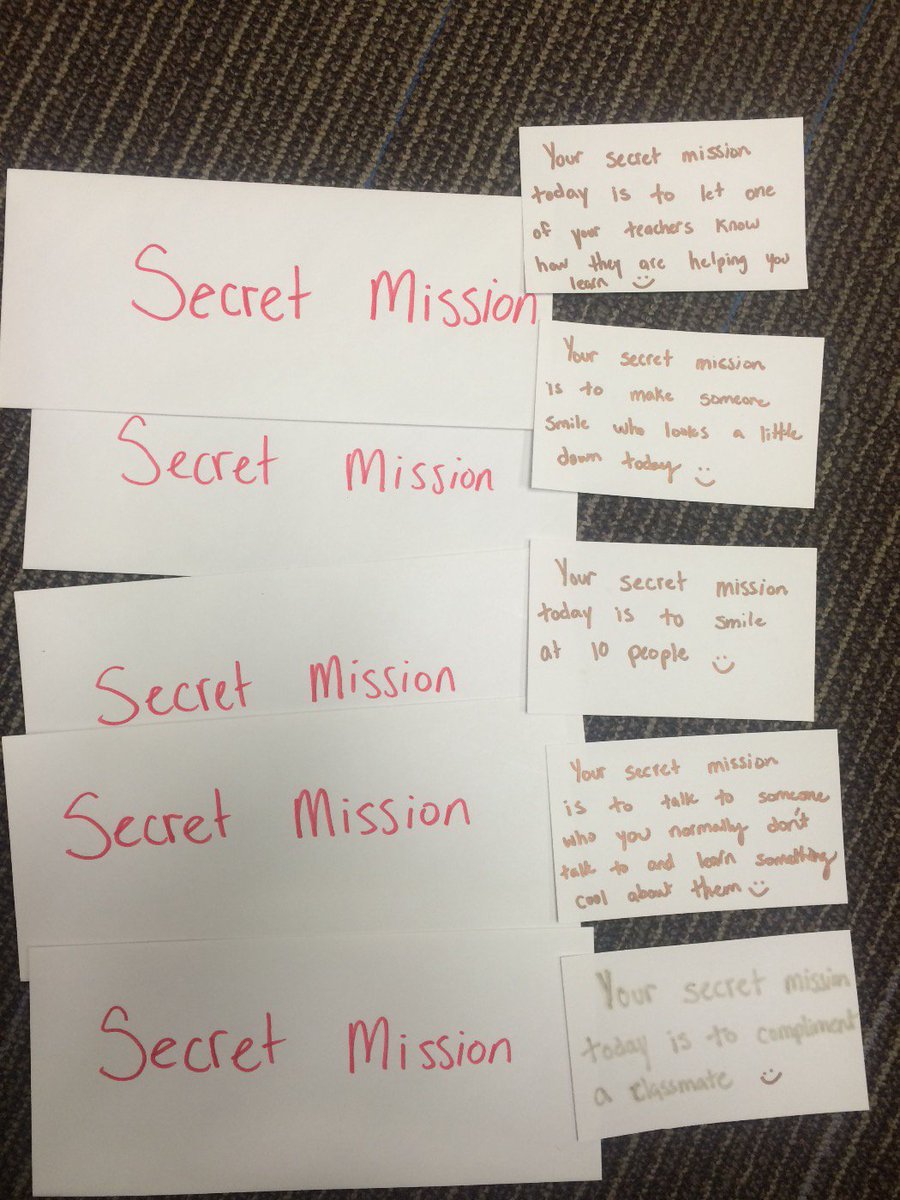 Secret Mission
Your secret mission
today is to let one
of your teachers know
how they are helping you
learn
Secret Mission
Your secret mission
is to make someone
smile who looks a little
down today
Secret Mission
Your secret mission
today is to smile
at 10 people
Secret Mission
Your secret mission
is to talk to someone
who you normally don't
talk to and learn something
cool about them
Secret Mission
Your secret mission
today is to compliment
a classmate